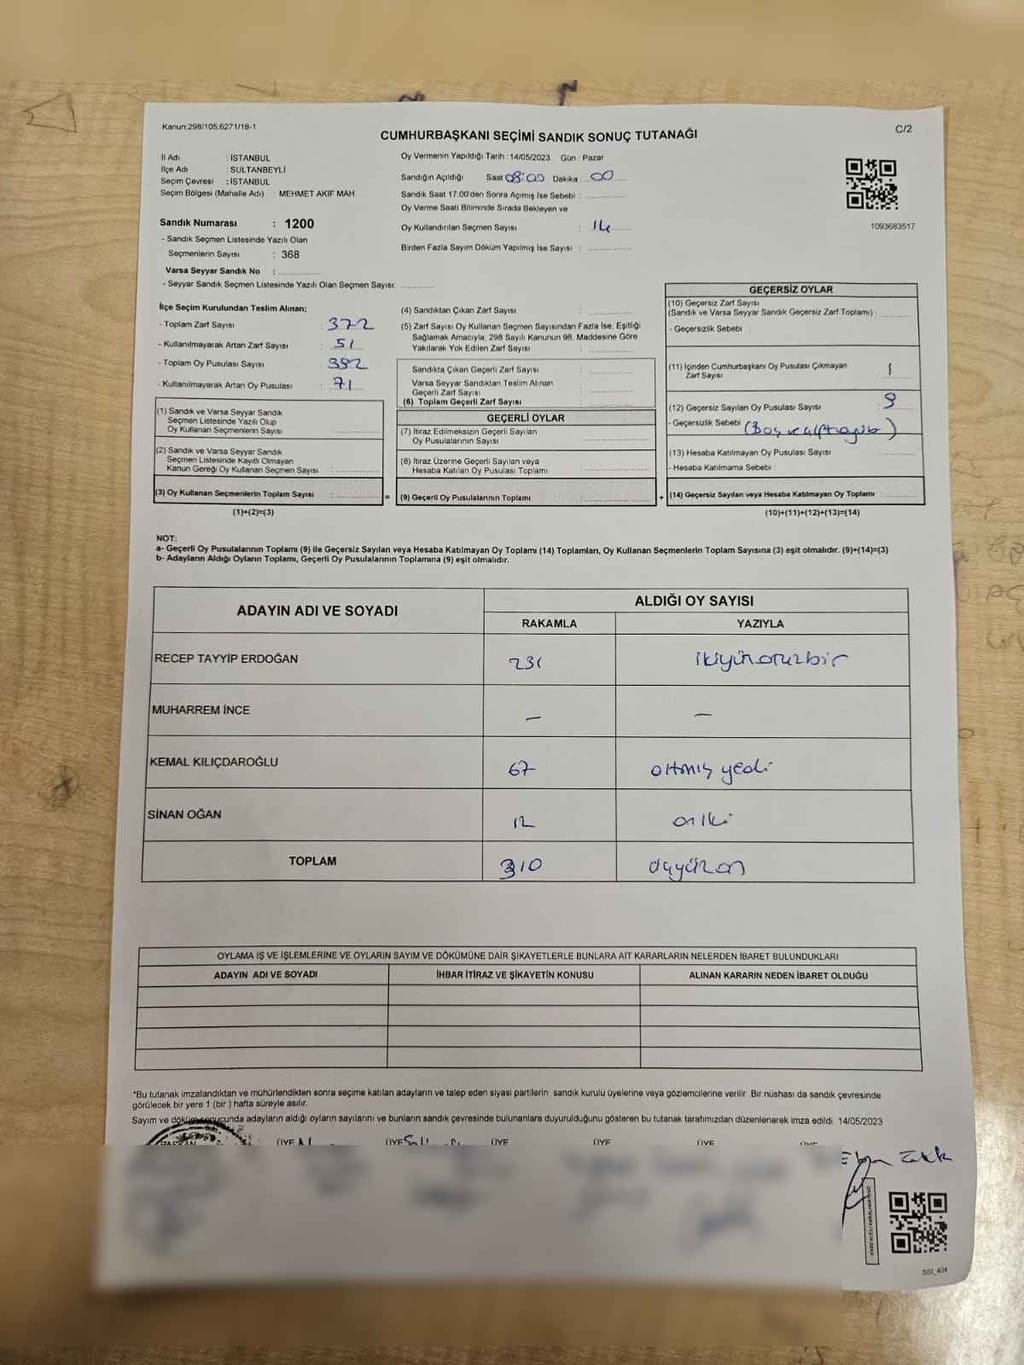 Kanun:298/105;6271/18-1
C/2
CUMHURBAŞKANI SEÇİMİ SANDIK SONUÇ TUTANAĞI
İl Adı : İSTANBUL
İlçe Adı : SULTANBEYLİ
Seçim Çevresi : İSTANBUL
Seçim Bölgesi (Mahalle Adı) : MEHMET AKİF MAH.
Sandık Numarası : 1200
- Sandık Seçmen Listesinde Yazılı Olan
Seçmenlerin Sayısı : 368
Varsa Seyyar Sandık No :
- Seyyar Sandık Seçmen Listesinde Yazılı Olan Seçmen Sayısı:
Oy Vermenin Yapıldığı Tarih : 14/05/2023 Gün : Pazar
Sandığın Açıldığı Saat 08:00 Dakika 00
Sandık Saat 17.00'den Sonra Açılmış İse Sebebi :
Oy Verme Saati Bitiminde Sırada Bekleyen ve
Oy Kullandırılan Seçmen Sayısı : 14
Birden Fazla Sayım Döküm Yapılmış İse Sayısı :
1093683517
İlçe Seçim Kurulundan Teslim Alınan;
- Toplam Zarf Sayısı : 372
- Kullanılmayarak Artan Zarf Sayısı : 51
- Toplam Oy Pusulası Sayısı : 382
- Kullanılmayarak Artan Oy Pusulası : 71
(1) Sandık ve Varsa Seyyar Sandık
Seçmen Listesinde Yazılı Olup
Oy Kullanan Seçmenlerin Sayısı :
(2) Sandık ve Varsa Seyyar Sandık
Seçmen Listesinde Kayıtlı Olmayan
Kanun Gereği Oy Kullanan Seçmen Sayısı :
(3) Oy Kullanan Seçmenlerin Toplam Sayısı :
(1)+(2)=(3)
(4) Sandıktan Çıkan Zarf Sayısı :
(5) Zarf Sayısı Oy Kullanan Seçmen Sayısından Fazla İse, Eşitliği
Sağlamak Amacıyla; 298 Sayılı Kanunun 98. Maddesine Göre
Yakılarak Yok Edilen Zarf Sayısı :
Sandıkta Çıkan Geçerli Zarf Sayısı :
Varsa Seyyar Sandıktan Teslim Alınan
Geçerli Zarf Sayısı :
(6) Toplam Geçerli Zarf Sayısı :
GEÇERLİ OYLAR
(7) İtiraz Edilmeksizin Geçerli Sayılan
Oy Pusulalarının Sayısı :
(8) İtiraz Üzerine Geçerli Sayılan veya
Hesaba Katılan Oy Pusulası Toplamı :
= (9) Geçerli Oy Pusulalarının Toplamı :
GEÇERSİZ OYLAR
(10) Geçersiz Zarf Sayısı
(Sandık ve Varsa Seyyar Sandık Geçersiz Zarf Toplamı) :
- Geçersizlik Sebebi :
(11) İçinden Cumhurbaşkanı Oy Pusulası Çıkmayan
Zarf Sayısı : 1
(12) Geçersiz Sayılan Oy Pusulası Sayısı : 9
- Geçersizlik Sebebi
(13) Hesaba Katılmayan Oy Pusulası Sayısı :
- Hesaba Katılmama Sebebi :
+ (14) Geçersiz Sayılan veya Hesaba Katılmayan Oy Toplamı :
(10)+(11)+(12)+(13)=(14)
NOT:
a- Geçerli Oy Pusulalarının Toplamı (9) ile Geçersiz Sayılan veya Hesaba Katılmayan Oy Toplamı (14) Toplamları, Oy Kullanan Seçmenlerin Toplam Sayısına (3) eşit olmalıdır. (9)+(14)=(3)
b- Adayların Aldığı Oyların Toplamı, Geçerli Oy Pusulalarının Toplamına (9) eşit olmalıdır.
ADAYIN ADI VE SOYADI
ALDIĞI OY SAYISI
RAKAMLA YAZIYLA
RECEP TAYYİP ERDOĞAN 231 ikiyüzotuzbir
MUHARREM İNCE — —
KEMAL KILIÇDAROĞLU 67 altmış yedi
SİNAN OĞAN 12 oniki
TOPLAM 310 üçyüzon
OYLAMA İŞ VE İŞLEMLERİNE VE OYLARIN SAYIM VE DÖKÜMÜNE DAİR ŞİKAYETLERLE BUNLARA AİT KARARLARIN NELERDEN İBARET BULUNDUKLARI
ADAYIN ADI VE SOYADI İHBAR İTİRAZ VE ŞİKAYETİN KONUSU ALINAN KARARIN NEDEN İBARET OLDUĞU
*Bu tutanak imzalandıktan ve mühürlendikten sonra seçime katılan adayların ve talep eden siyasi partilerin sandık kurulu üyelerine veya gözlemcilerine verilir. Bir nüshası da sandık çevresinde
görülecek bir yere 1 (bir) hafta süreyle asılır.
Sayım ve döküm sonucunda adayların aldığı oyların sayılarını ve bunların sandık çevresinde bulunanlara duyurulduğunu gösteren bu tutanak tarafımızdan düzenlenerek imza edildi. 14/05/2023
ÜYE ÜYE ÜYE ÜYE ÜYE ÜYE